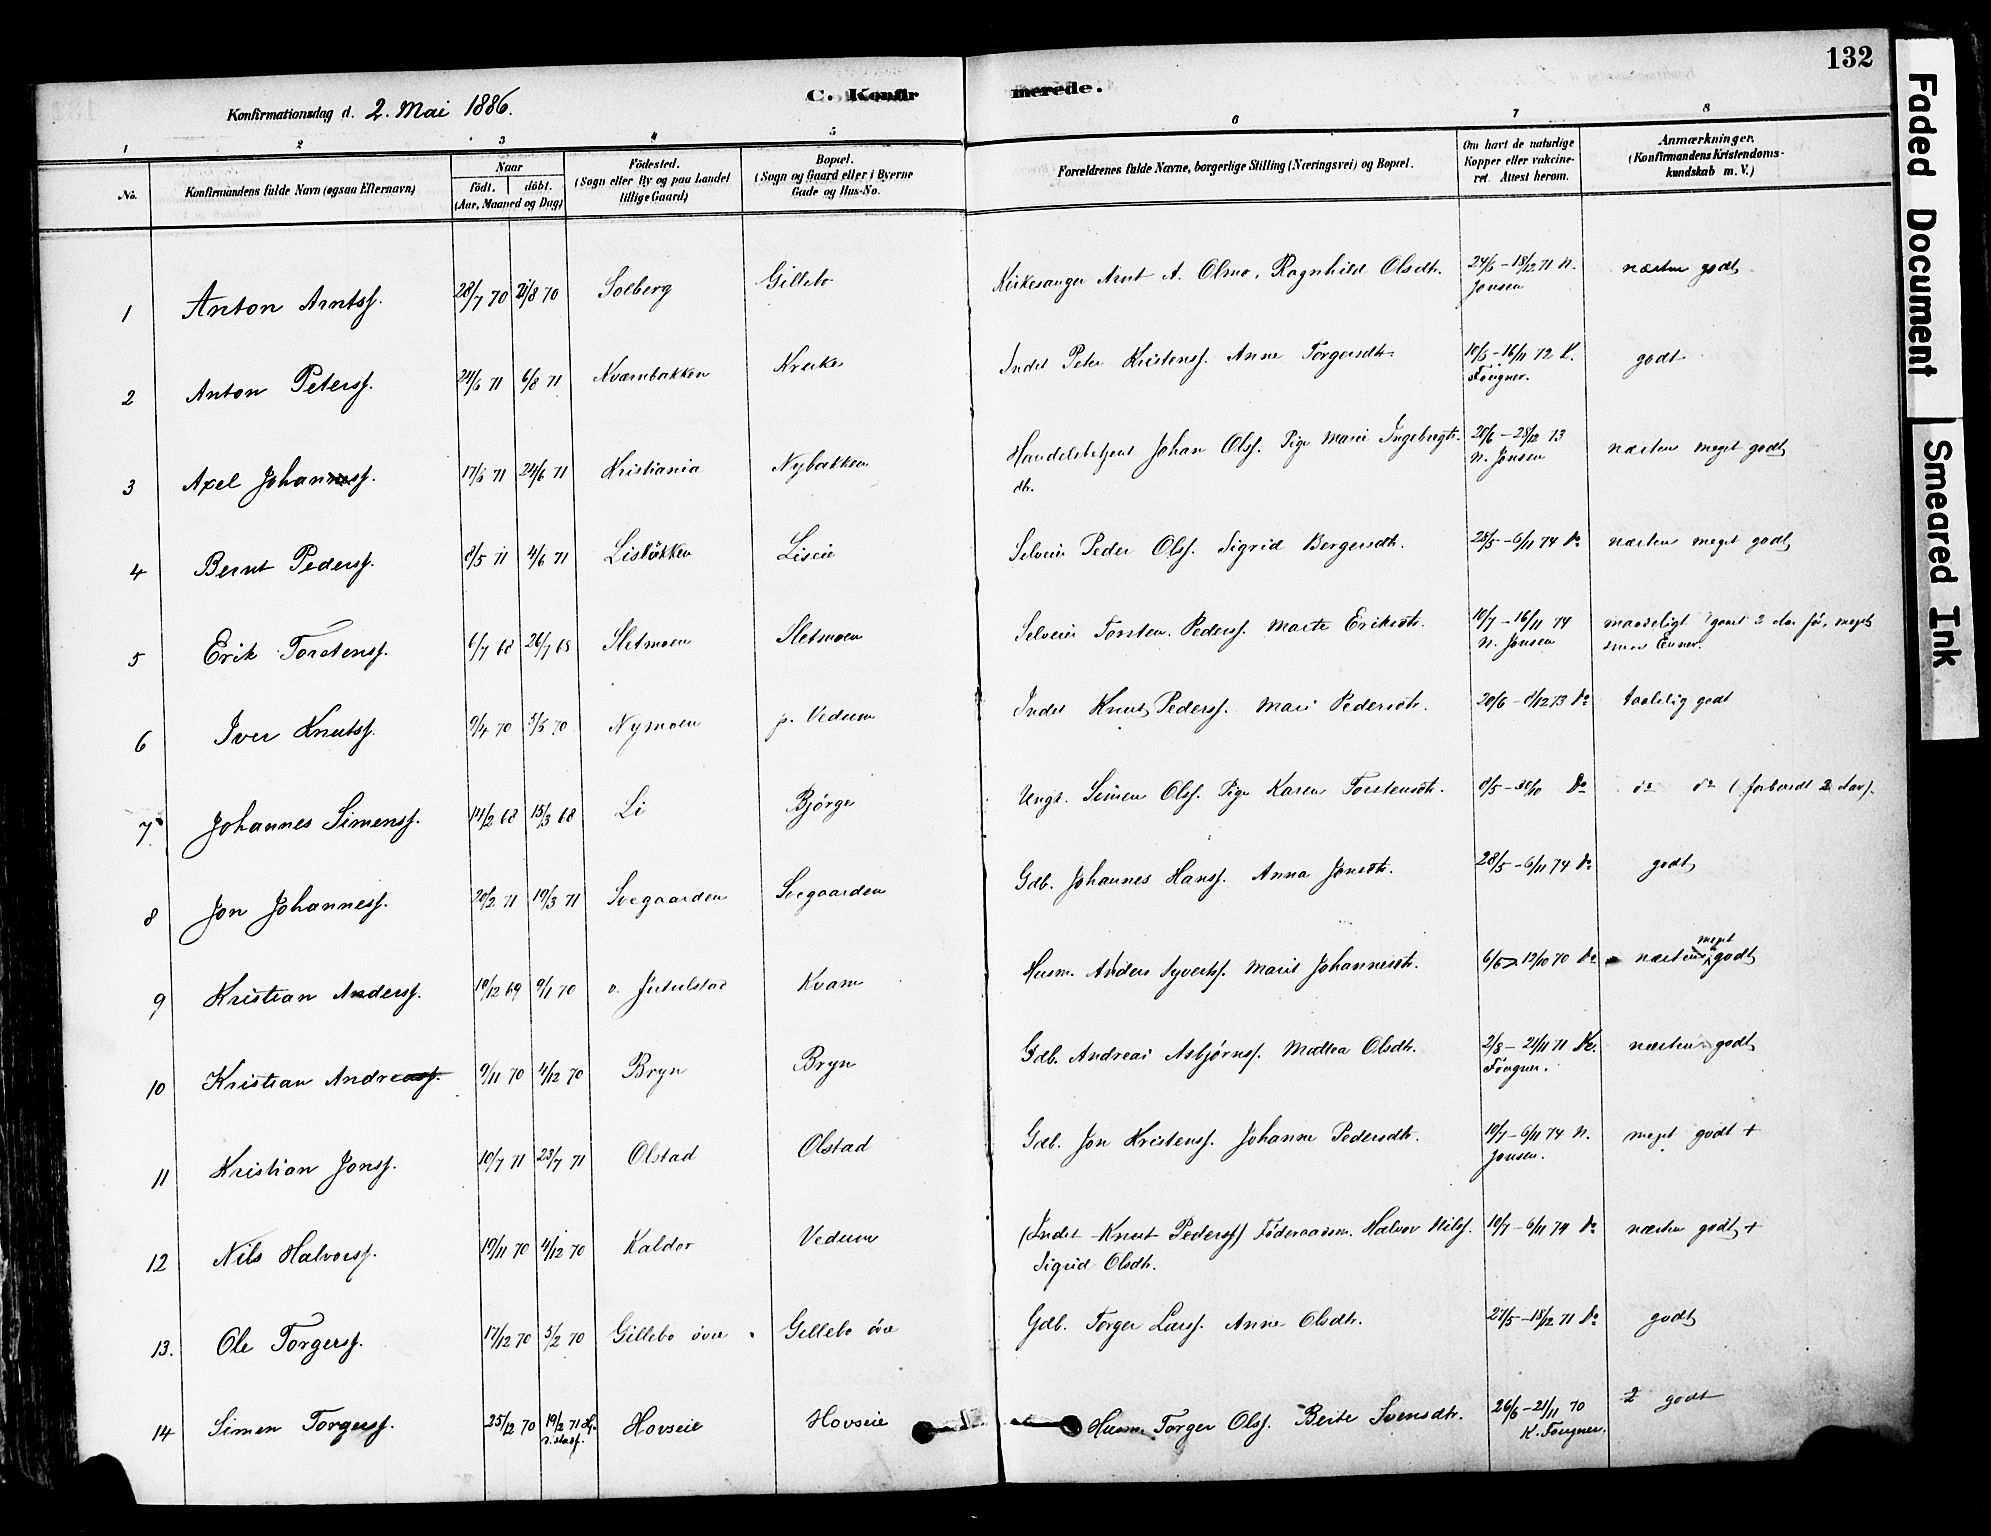 132
Konfirmationsdag d. 2. Mai 1886.
C. Konfir merede.
1 2 3 4 5 6 7 8
No.
Konfirmandens fulde Navn (ogsaa Efternavn)
Naar
født. døbt.
(Aar, Maaned og Dag)
Fødested.
(Sogn eller By og paa Landet
tillige Gaard)
Bopæl.
(Sogn og Gaard eller i Byerne
Gade og Hus-No.
Forældrenes fulde Navne, borgerlige Stilling (Næringsvei) og Bopæl.
Om havt de naturlige
Kopper eller vakcine-
ret. Attest herom.
Anmærkninger.
(Konfirmandens Kristendoms-
kundskab m. V.)
1 Anton Arntsf. 28/7 70 21/8 70 Solberg Gillebo Kirkesanger Arnt A. Olmo, Ragnhild Olsdtr. 24/6 - 18/12 71 N. næsten godt
Jonsen
2 Anton Petersf. 24/6 71 6/8 71 Kværnbakken Kreke Indst Peter Kristensf. Anne Torgersdtr. 10/6 - 16/11 72 K. godt
Fougner.
3 Axel Johannesf. 17/6 71 24/6 71 Kristiania Nybakken Handelsbetjent Johan Olsf. Pige Marie Ingebrigts- 20/6 - 28/12 73 næsten meget godt
dtr. N. Jonsen
4 Bernt Pedersf. 8/5 71 4/6 71 Lisløkken Liseie Selveier Peder Olsf. Sigrid Bergersdtr. 28/5 - 6/11 74 do næsten meget godt
5 Erik Torstensf. 6/7 68 26/7 68 Sletmoen Sletmoen Selveier Torsten Pedersf. Marte Eriksdtr. 10/7 - 16/11 74 maadeligt (gaaet 2 Aar før, meget
N. Jonsen smaa Evner.
6 Iver Knutsf. 9/4 70 3/5 70 Nymoen p. Vedum Indst Knut Pedersf. Mari Pedersdtr. 20/6 - 8/12 73 do taalelig godt
7 Johannes Simensf. 14/2 68 15/3 68 Li Bjørge Ungk. Simen Olsf. Pige Karen Torstensdtr. 8/5 - 30/10 do do do (forberedt 2 Aar).
8 Jon Johannesf. 20/2 71 19/3 71 Svegaarden Svegaarden Gdb. Johannes Hansf. Anna Jonsdtr. 28/5 - 6/11 74 do godt
9 Kristian Andersf. 10/12 69 9/1 70 v. Jutulstad Kvam Husm. Anders Syvertsf. Marit Johannesdtr. 6/6 - 12/10 70 do næsten meget godt
10 Kristian Andreasf. 9/11 70 4/12 70 Bryn Bryn Gdb. Andreas Asbjørnsf. Mathea Olsdtr. 2/8 - 21/11 71 K. næsten godt
Fougner.
11 Kristian Jonsf. 10/7 71 23/7 71 Olstad Olstad Gdb. Jon Kristensf. Johanne Pedersdtr. 10/7 - 6/11 74 N. meget godt +
Jonsen.
12 Nils Halvorsf. 19/11 70 4/12 70 Kaldor Vedum (Indst Knut Pedersf) Føderaadsm. Halvor Nilsf. 10/7 - 6/11 74 do næsten godt +
Sigrid Olsdtr.
13. Ole Torgersf. 17/12 70 5/2 70 Gillebo øvre Gillebo øvre Gdb. Torger Larsf. Anne Olsdtr. 27/5 - 18/12 71 do godt
14 Simen Torgersf. 25/12 70 19/2 71 Hovseie Hovseie Husm. Torger Olsf. Berte Svensdtr. 26/6 - 21/11 70 2 godt
K. Fougner.
Faded Document
Smeared Ink